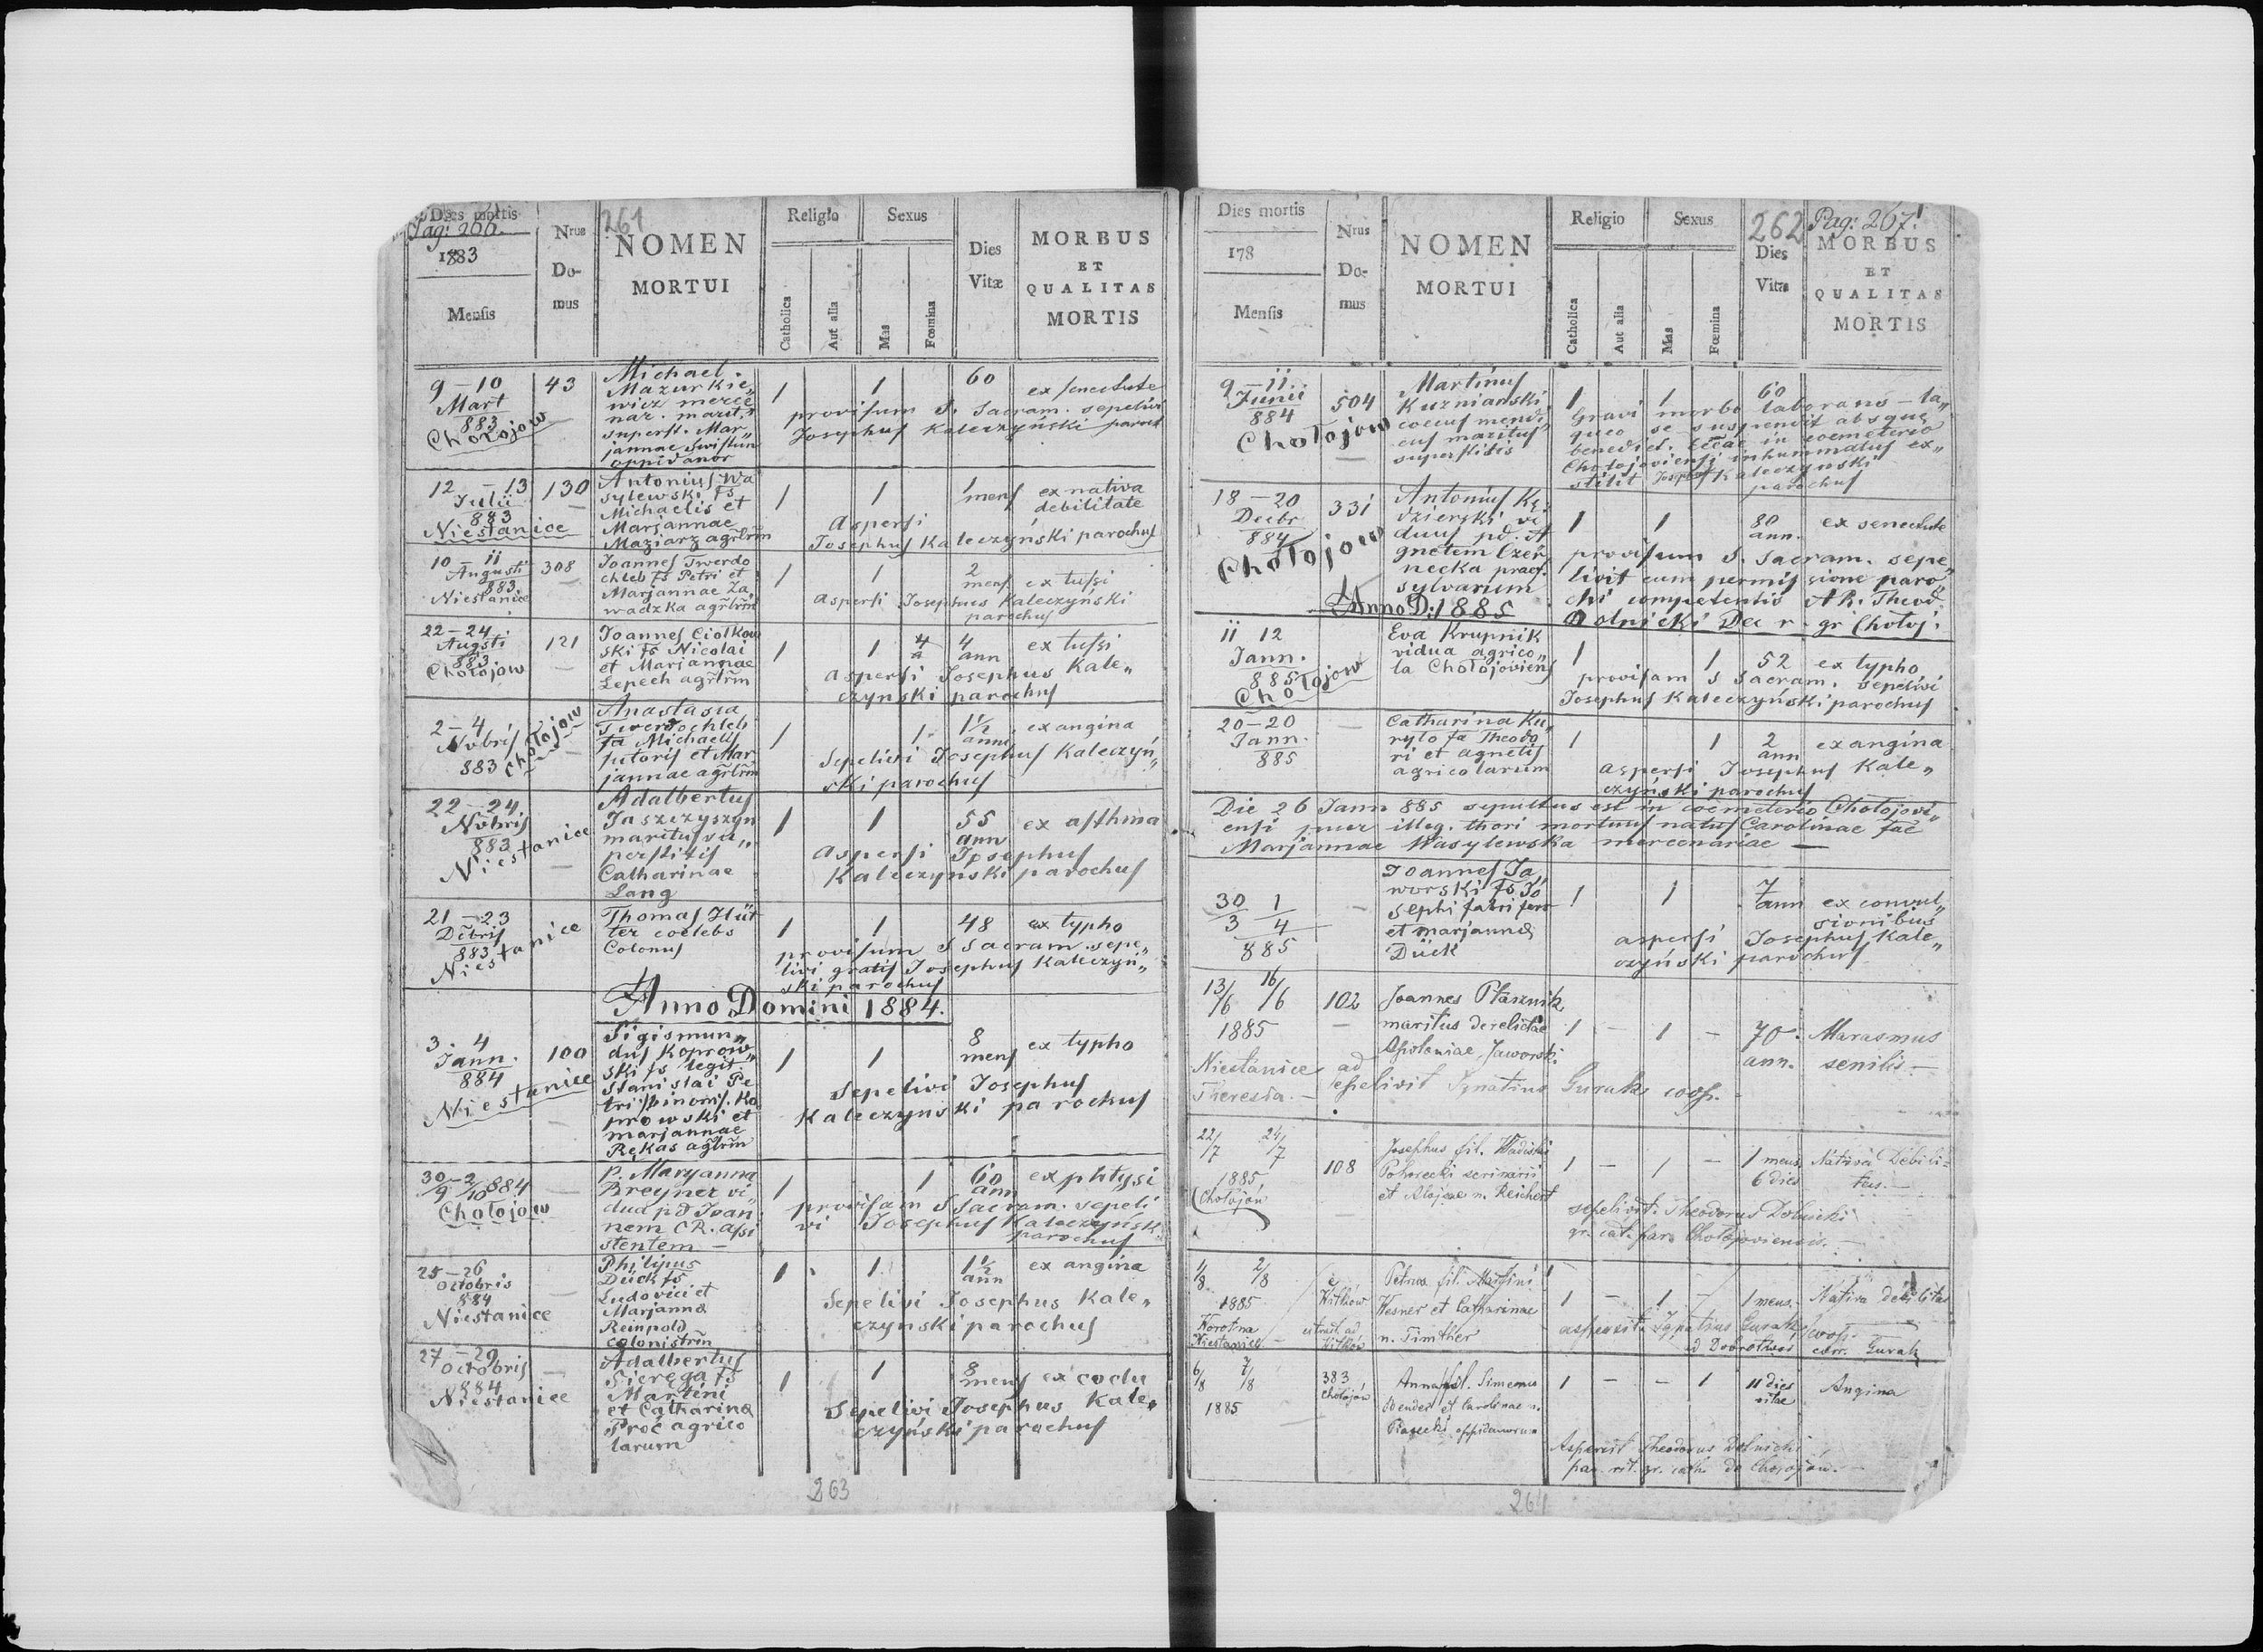 Dies mortis
Pag: 266.
1883
Mensis
Nrus
Do-
mus
261
NOMEN
MORTUI
Religio
Catholica
Aut alia
Sexus
Mas
Fœmina
Dies
Vitæ
MORBUS
ET
QUALITAS
MORTIS
9 – 10
Mart
883
Chołojow
43
Michael
Mazurkie„
wicz merce
nar. marit.
superst. Mar„
jannae Swistun
oppidanor
1
1
60
ex senectute
provisum S. Sacram. sepelivi
Josephus Kaleczyński paroch
12 – 13
Julii
883
Niestanice
130
Antonius Wa
sylewski fs
Michaelis et
Marjannae
Maziarz agrlrm
1
1
1
mens
ex nativa
debilitate
Aspersi
Josephus Kaleczyński parochus
10 – 11
Augusti
883
Niestanice
308
Joannes Twerdo
chleb fs Petri et
Marjannae Za„
wadzka agrlrm
1
1
2
mens
ex tussi
aspersi Josephus Kaleczyński
parochus
22 – 24
Augsti
883
Chołojow
121
Joannes Ciołkow
ski fs Nicolai
et Marjannae
Lepech agrlrm
1
1
4
a
4
ann
ex tussi
aspersi Josephus Kale„
czynski parochus
2 – 4
Nvbris
883
Chołojow
Anastasia
Twerdochleb
fa Michaelis
sutoris et Mar„
jannae agrlrm
1
1
1½
anni
ex angina
Sepelivi Josephus Kaleczyń„
ski parochus
22 – 24
Nvbris
883
Niestanice
Adalbertus
Jaszczyszyn
maritus su„
perstitis
Catharinae
Lang
1
1
55
ann
ex asthma
Aspersi Josephus
Kaleczynski parochus
21 – 23
Dcbris
883
Niestanice
Thomas Hüt
ter coelebs
Colonus
1
1
48
ex typho
provisum S Sacram. sepe„
livi gratis Josephus Kaleczyń„
ski parochus
Anno Domini 1884.
3. 4
Jann.
884
Niestanice
100
Sigismun„
dus Koprow„
ski fs legit.
Stanislai Pe
tri binom. Ko
prowski et
marjannae
Rękas agrlrm
1
1
8
mens
ex typho
Sepelivi Josephus
Kaleczynski parochus
30 – 2
/9 /10 884
Chołojow
P. Maryanna
Breyner vi„
dua pd Joan
nem CR. assi
stentem –
1
1
60
ann
ex phtysi
provisam S Sacram. sepeli
vi Josephus Kaleczyńsk
parochus
25 – 26
Octobris
884
Niestanice
Philipus
Dück fs
Ludovici et
Marjanna
Reinpold
colonistrm
1
1
1½
ann
ex angina
Sepelivi Josephus Kale„
czynski parochus
27 – 29
Octobris
884
Niestanice
Adalbertus
Sierega fs
Martini
et Catharina
Proć agrico
larum
1
1
8
mens
ex coclu
Sepelivi Josephus Kale„
czyński parochus
263
Dies mortis
178
Mensis
Nrus
Do-
mus
NOMEN
MORTUI
Religio
Catholica
Aut alia
Sexus
Mas
Fœmina
262
Dies
Vitæ
Pag: 267.
MORBUS
ET
QUALITAS
MORTIS
9 – 11
Junii
884
Chołojow
504
Martinus
Kuzniarski
coecus mendi„
cus maritus
superstitis
1
1
60
Gravi morbo laborans – la„
queo se suspendit absque
benedict. eccae in coemeterio
Chołojoviensi inhumatus ex„
stitit Joseph Kaleczynski
parochus
18 – 20
Decbr
884
Chołojow
331
Antonius Kę„
dzierski vi
duus pd. A
gnetem Czer
necka praef.
sylvarum
1
1
80
ann.
ex senectute
provisum S. Sacram. sepe„
livit cum permissione paro„
chi competentis AR. Theod
Dolnicki Dec r. gr Chołoj.
Anno D: 1885
11 12
Jann.
885
Chołojow
Eva Krupnik
vidua agrico„
la Chołojoviens
1
1
52
ex typho
provisam S Sacram. sepelivi
Josephus Kaleczyński parochus
20 – 20
Jann.
885
Catharina Ku„
ryło fa Theodo
ri et agnetis
agricolarum
1
1
2
ann
ex angina
aspersi Josephus Kale„
czyński parochus
Die 26 Jann 885 sepultus est in coemeterio Chołojovi„
ensi puer illeg. thori mortuus natus Carolinae fae
Marjannae Wasylewska mercenariae –
30 1
3 4
885
Joannes Ja„
worski fs Jo
sephi fabri ferr
et marjanna
Dück
1
1
7
ann
ex convul„
sionibus
aspersi Josephus Kale„
czyński parochus
13/6 16/6
1885
Niestanice ad
Theresia. –
102
Joannes Ptasznik
maritus derelictae
Apoloniae Jaworski
1 – 1 –
70
ann.
Marasmus
senilis –
sepelivit Ignatius Gurak coop.
22/7 24/7
1885
Chołojów
108
Josephus fil. Wladislai
Pohorecki scrinarii
et Aloisae n. Reichert
1 – 1 –
1 mens
6 dies
Nativa Debili=
tas. –
sepelivit Theodorus Dolnicki
gr. cat. paro Chołojoviensis. –
1/8 2/8
1885
Worotna
Niestanice
Witkow
ad
Witków
Petrus fil. Martini
Wesner et Catharinae
n. Timther
1 – 1 –
1 mens.
Nativa debilitas
aspersit Ignatius Gurak coop.
ad Dobrotwor
Gurak
6/8 7/8
1885
383
Chołojów
Anna fil. Simeonis
Bender et Carolinae n.
Piasecki oppidanorum
1 – – 1
11 dies
vitae
Angina
Aspersit Theodorus Dolnicki
par. rit. gr. cath. de Chołojów. –
264